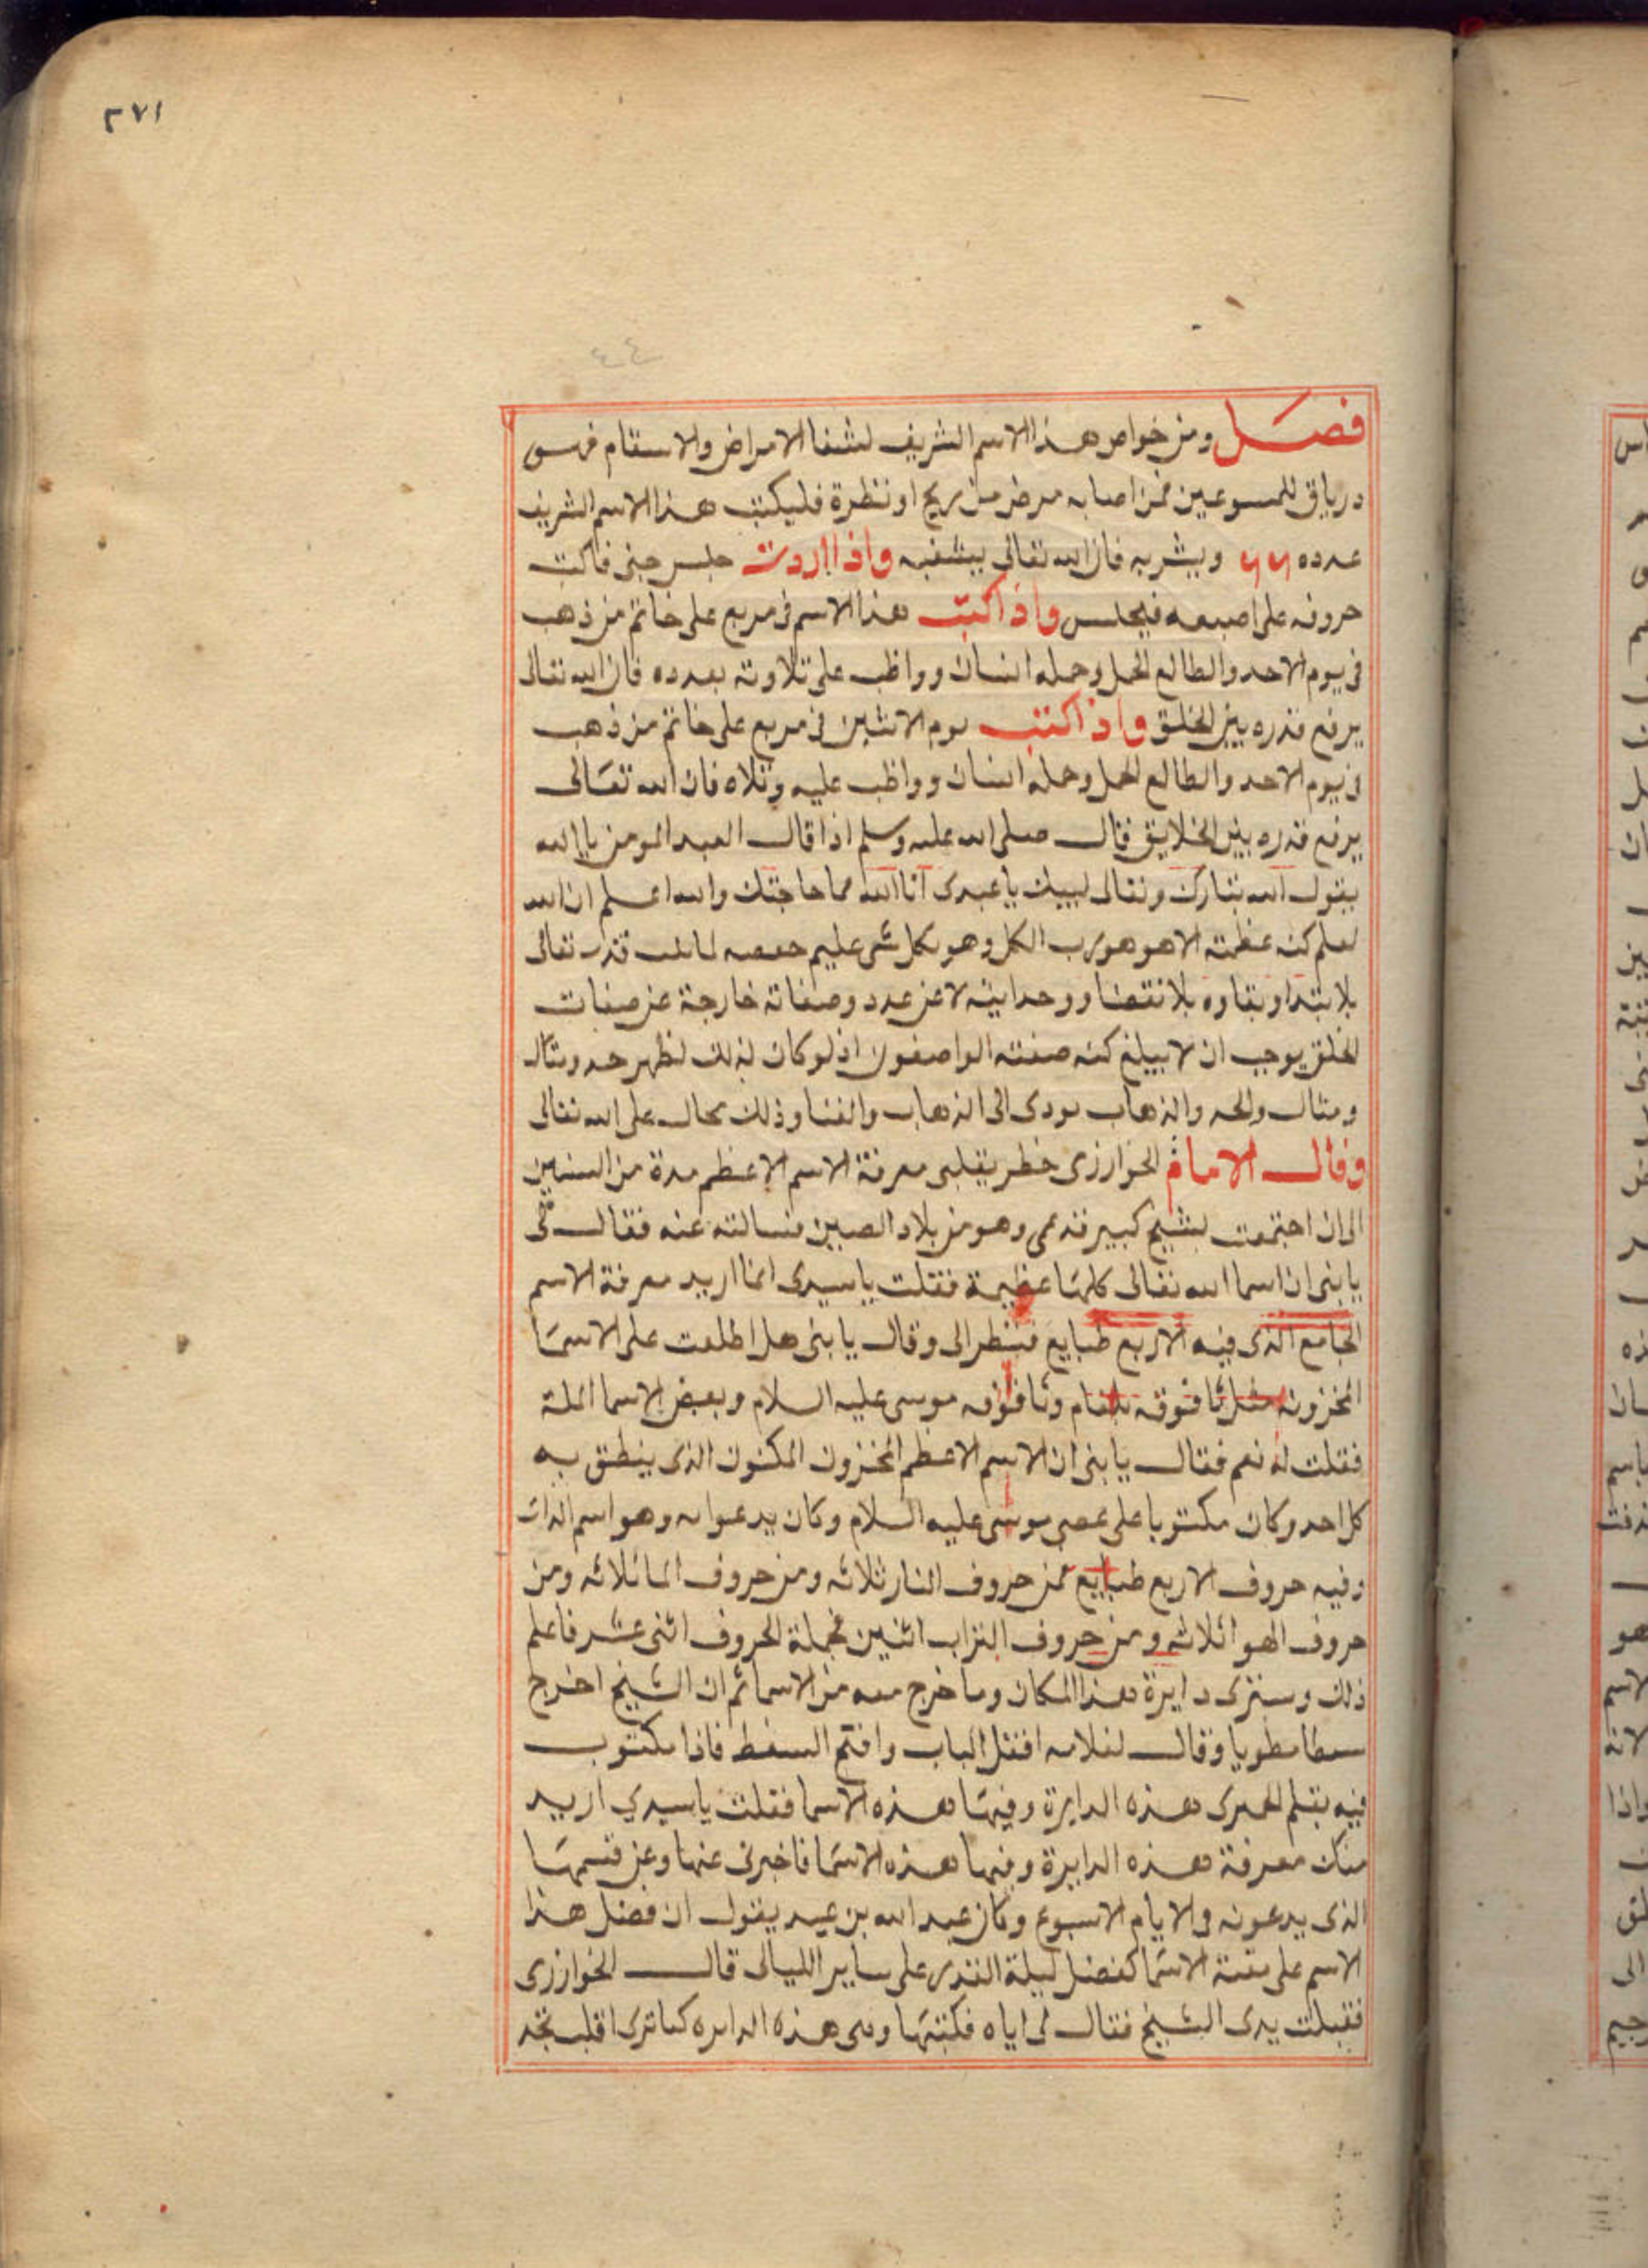 ٢٧١
٤٤
فصل ومن خواص هذا الاسم الشريف لشفا الامراض والاسقام فهو
درياق للمسوعين فمن اصابه مرض من ريح او نظرة فليكتب هذا الاسم الشريف
عدده ٦٦ ويشربه فان الله تعالى يشفيه واذا اردت حبس جنى فاكتب
حروفه على اصبعه فيحبس واذا كتب هذا الاسم فى مربع على خاتم من ذهب
فى يوم الاحد والطالع الحمل وحمله انسان وواظب على تلاوته بعدده فان الله تعالى
يرفع قدره بين الخلق واذا كتب يوم الاثنين فى مربع على خاتم من ذهب
فى يوم الاحد والطالع الحمل وحمله انسان وواظب عليه وتلاه فان الله تعالى
يرفع قدره بين الخلايق قال صلى الله عليه وسلم اذا قال العبد المومن يا الله
يقول الله تبارك وتعالى لبيك يا عبدى انا الله فما حاجتك والله اعلم ان الله
لعلم كنه عظمته الا هو هو رب الكل وهو بكل شى عليم تعالى
بلا ابتدا وبقاوه بلا انقضا ووحدانيته لا عن عدد وصفاته خارجة عن صفات
الخلق يوجب ان لا يبلغ كنه صفته الواصفون اذ لو كان لذلك لظهر حد ومثال
ومثال والحد والذهاب يودى الى الذهاب والفنا وذلك محال على الله تعالى
وقال الامام الخوارزمى خطر بقلبى معرفة الاسم الاعظم مدة من السنين
الى ان اجتمعت بشيخ كبير قد عمى وهو من بلاد الصين فسالته عنه فقال لى
يا بنى ان اسما الله تعالى كلها عظيمة فقلت يا سيدى انما اريد معرفة الاسم
الجامع الذى فيه الاربع طبايع فنظر الى وقال يا بنى هل اطلعت على الاسما
المخزونه مثل ثافوقه وثافوفه موسى عليه السلام وبعض الاسما
فقلت له نعم فقال يا بنى ان الاسم الاعظم المخزون المكنون الذى ينطق به
كل احد وكان مكتوبا على عصى موسى عليه السلام وكان يدعوا به وهو اسم الذات
وفيه حروف الاربع طبايع فمن حروف النار ثلاثه ومن حروف الما ثلاثه ومن
حروف الهوا ثلاثه ومن حروف التراب اثنين فجملة الحروف اثنى عشر فاعلم
ذلك وسترى دايرة هذا المكان وما خرج معه من الاسما ثم ان الشيخ اخرج
سمطا مطويا وقال لغلامه اقفل الباب وافتح السفط فاذا مكتوب
فيه بقلم الحميرى هذه الدايرة وفيها هذه الاسما فقلت يا سيدي اريد
منك معرفة هذه الدايرة وفيها هذه الاسما فاخبرنى عنها وعن قسمها
الذى يدعونه والايام الاسبوع وكان عبد الله بن عيد يقول ان فضل هذا
الاسم على بقية الاسما كفضل ليلة القدر على ساير الليالى قال الخوارزمى
فقبلت يدى الشيخ فقال لى اياه فكتبتها وهى هذه الدايره كما ترى اقلب تجد